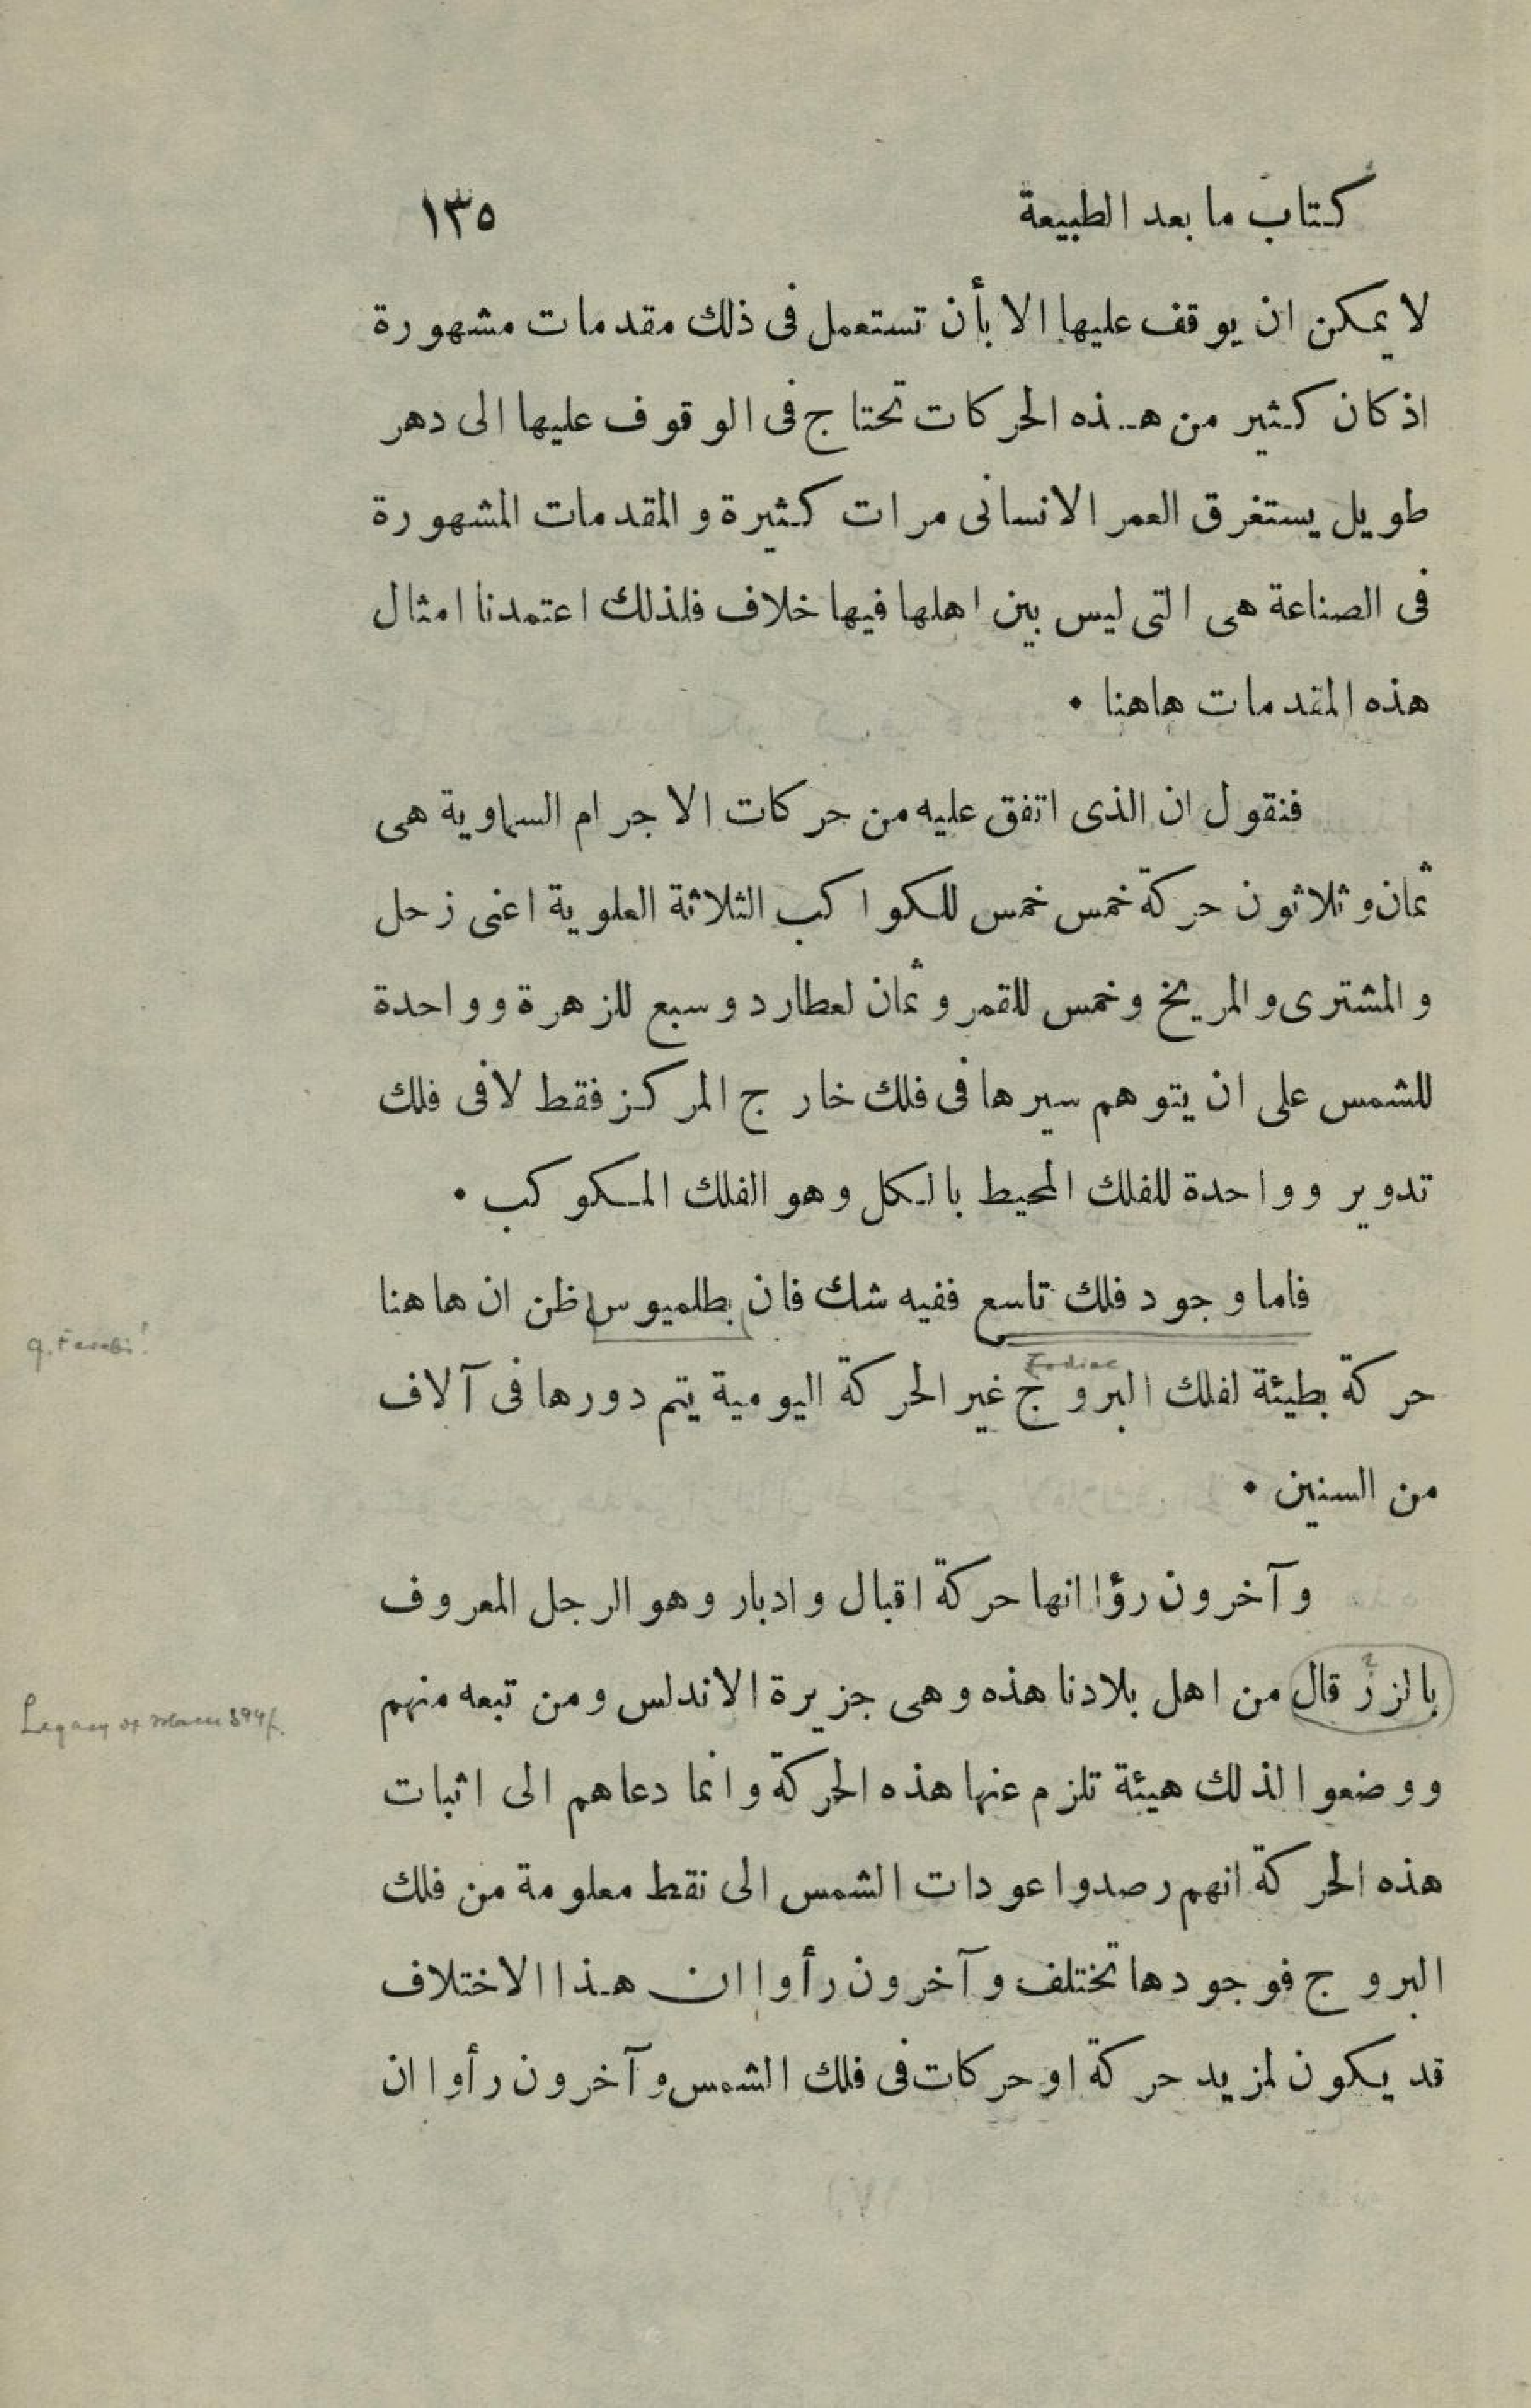 كتاب ما بعد الطبيعة ١٣٥
لا يمكن ان يوقف عليها الا بأن تستعمل فى ذلك مقدمات مشهورة
اذ كان كثير من هذه الحركات تحتاج فى الوقوف عليها الى دهر
طويل يستغرق العمر الانسانى مرات كثيرة والمقدمات المشهورة
فى الصناعة هى التى ليس بين اهلها فيها خلاف فلذلك اعتمدنا امثال
هذه المقدمات هاهنا ٠
فنقول ان الذى اتفق عليه من حركات الاجرام السماوية هى
ثمان وثلاثون حركة خمس خمس للكواكب الثلاثة العلوية اعنى زحل
والمشترى والمريخ وخمس للقمر وثمان لعطارد وسبع للزهرة وواحدة
للشمس على ان يتوهم سيرها فى فلك خارج المركز فقط لا فى فلك
تدوير وواحدة للفلك المحيط بالكل وهو الفلك المكوكب ٠
فاما وجود فلك تاسع ففيه شك فان بطلميوس ظن ان هاهنا
q. Farabi?
Zodiac
حركة بطيئة لفلك البروج غير الحركة اليومية يتم دورها فى آلاف
من السنين ٠
وآخرون رؤا انها حركة اقبال وادبار وهو الرجل المعروف
بالزرقال من اهل بلادنا هذه وهى جزيرة الاندلس ومن تبعه منهم
Legacy of Islam 394f.
ووضعوا لذلك هيئة تلزم عنها هذه الحركة وانما دعاهم الى اثبات
هذه الحركة انهم رصدوا عودات الشمس الى نقط معلومة من فلك
البروج فوجودها تختلف وآخرون رأوا ان هذا الاختلاف
قد يكون لمزيد حركة او حركات فى فلك الشمس وآخرون رأوا ان